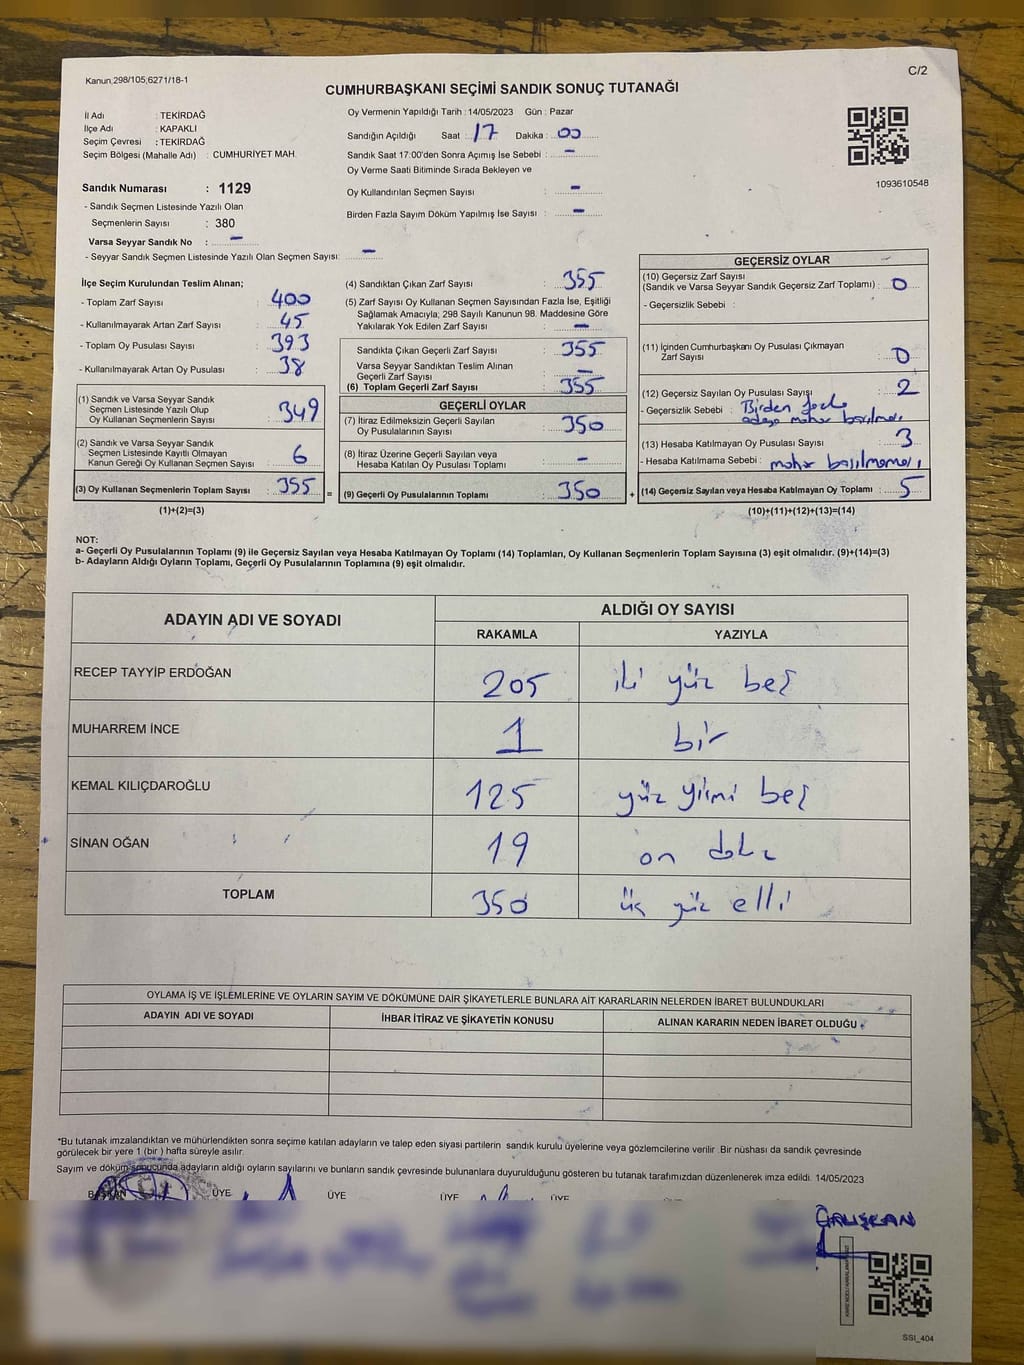 Kanun;298/105;6271/18-1
C/2
CUMHURBAŞKANI SEÇİMİ SANDIK SONUÇ TUTANAĞI
İl Adı : TEKİRDAĞ
İlçe Adı : KAPAKLI
Seçim Çevresi : TEKİRDAĞ
Seçim Bölgesi (Mahalle Adı) : CUMHURİYET MAH.
Sandık Numarası : 1129
- Sandık Seçmen Listesinde Yazılı Olan
Seçmenlerin Sayısı : 380
Varsa Seyyar Sandık No : -
- Seyyar Sandık Seçmen Listesinde Yazılı Olan Seçmen Sayısı: -
Oy Vermenin Yapıldığı Tarih : 14/05/2023 Gün : Pazar
Sandığın Açıldığı Saat : 17 Dakika : 00
Sandık Saat 17:00'den Sonra Açımış İse Sebebi : -
Oy Verme Saati Bitiminde Sırada Bekleyen ve
Oy Kullandırılan Seçmen Sayısı : -
Birden Fazla Sayım Döküm Yapılmış İse Sayısı : -
1093610548
İlçe Seçim Kurulundan Teslim Alınan;
- Toplam Zarf Sayısı : 400
- Kullanılmayarak Artan Zarf Sayısı : 45
- Toplam Oy Pusulası Sayısı : 393
- Kullanılmayarak Artan Oy Pusulası : 38
(1) Sandık ve Varsa Seyyar Sandık
Seçmen Listesinde Yazılı Olup
Oy Kullanan Seçmenlerin Sayısı : 349
(2) Sandık ve Varsa Seyyar Sandık
Seçmen Listesinde Kayıtlı Olmayan
Kanun Gereği Oy Kullanan Seçmen Sayısı : 6
(3) Oy Kullanan Seçmenlerin Toplam Sayısı : 355
(1)+(2)=(3)
(4) Sandıktan Çıkan Zarf Sayısı : 355
(5) Zarf Sayısı Oy Kullanan Seçmen Sayısından Fazla İse, Eşitliği
Sağlamak Amacıyla; 298 Sayılı Kanunun 98. Maddesine Göre
Yakılarak Yok Edilen Zarf Sayısı : -
Sandıkta Çıkan Geçerli Zarf Sayısı : 355
Varsa Seyyar Sandıktan Teslim Alınan
Geçerli Zarf Sayısı : -
(6) Toplam Geçerli Zarf Sayısı : 355
GEÇERLİ OYLAR
(7) İtiraz Edilmeksizin Geçerli Sayılan
Oy Pusulalarının Sayısı : 350
(8) İtiraz Üzerine Geçerli Sayılan veya
Hesaba Katılan Oy Pusulası Toplamı : -
= (9) Geçerli Oy Pusulalarının Toplamı : 350 +
GEÇERSİZ OYLAR
(10) Geçersiz Zarf Sayısı
(Sandık ve Varsa Seyyar Sandık Geçersiz Zarf Toplamı) : 0
- Geçersizlik Sebebi :
(11) İçinden Cumhurbaşkanı Oy Pusulası Çıkmayan
Zarf Sayısı : 0
(12) Geçersiz Sayılan Oy Pusulası Sayısı : 2
- Geçersizlik Sebebi : Birden fazla
adaya mühür basılması
(13) Hesaba Katılmayan Oy Pusulası Sayısı : 3
- Hesaba Katılmama Sebebi : mühür basılmaması
(14) Geçersiz Sayılan veya Hesaba Katılmayan Oy Toplamı : 5
(10)+(11)+(12)+(13)=(14)
NOT:
a- Geçerli Oy Pusulalarının Toplamı (9) ile Geçersiz Sayılan veya Hesaba Katılmayan Oy Toplamı (14) Toplamları, Oy Kullanan Seçmenlerin Toplam Sayısına (3) eşit olmalıdır. (9)+(14)=(3)
b- Adayların Aldığı Oyların Toplamı, Geçerli Oy Pusulalarının Toplamına (9) eşit olmalıdır.
ADAYIN ADI VE SOYADI
ALDIĞI OY SAYISI
RAKAMLA YAZIYLA
RECEP TAYYİP ERDOĞAN 205 iki yüz beş
MUHARREM İNCE 1 bir
KEMAL KILIÇDAROĞLU 125 yüz yirmi beş
SİNAN OĞAN 19 on dokuz
TOPLAM 350 üç yüz elli
OYLAMA İŞ VE İŞLEMLERİNE VE OYLARIN SAYIM VE DÖKÜMÜNE DAİR ŞİKAYETLERLE BUNLARA AİT KARARLARIN NELERDEN İBARET BULUNDUKLARI
ADAYIN ADI VE SOYADI İHBAR İTİRAZ VE ŞİKAYETİN KONUSU ALINAN KARARIN NEDEN İBARET OLDUĞU
*Bu tutanak imzalandıktan ve mühürlendikten sonra seçime katılan adayların ve talep eden siyasi partilerin sandık kurulu üyelerine veya gözlemcilerine verilir .Bir nüshası da sandık çevresinde
görülecek bir yere 1 (bir ) hafta süreyle asılır.
Sayım ve döküm sonucunda adayların aldığı oyların sayılarını ve bunların sandık çevresinde bulunanlara duyurulduğunu gösteren bu tutanak tarafımızdan düzenlenerek imza edildi. 14/05/2023
BAŞKAN ÜYE ÜYE ÜYE ÜYE
ÇALIŞKAN
SSI_404